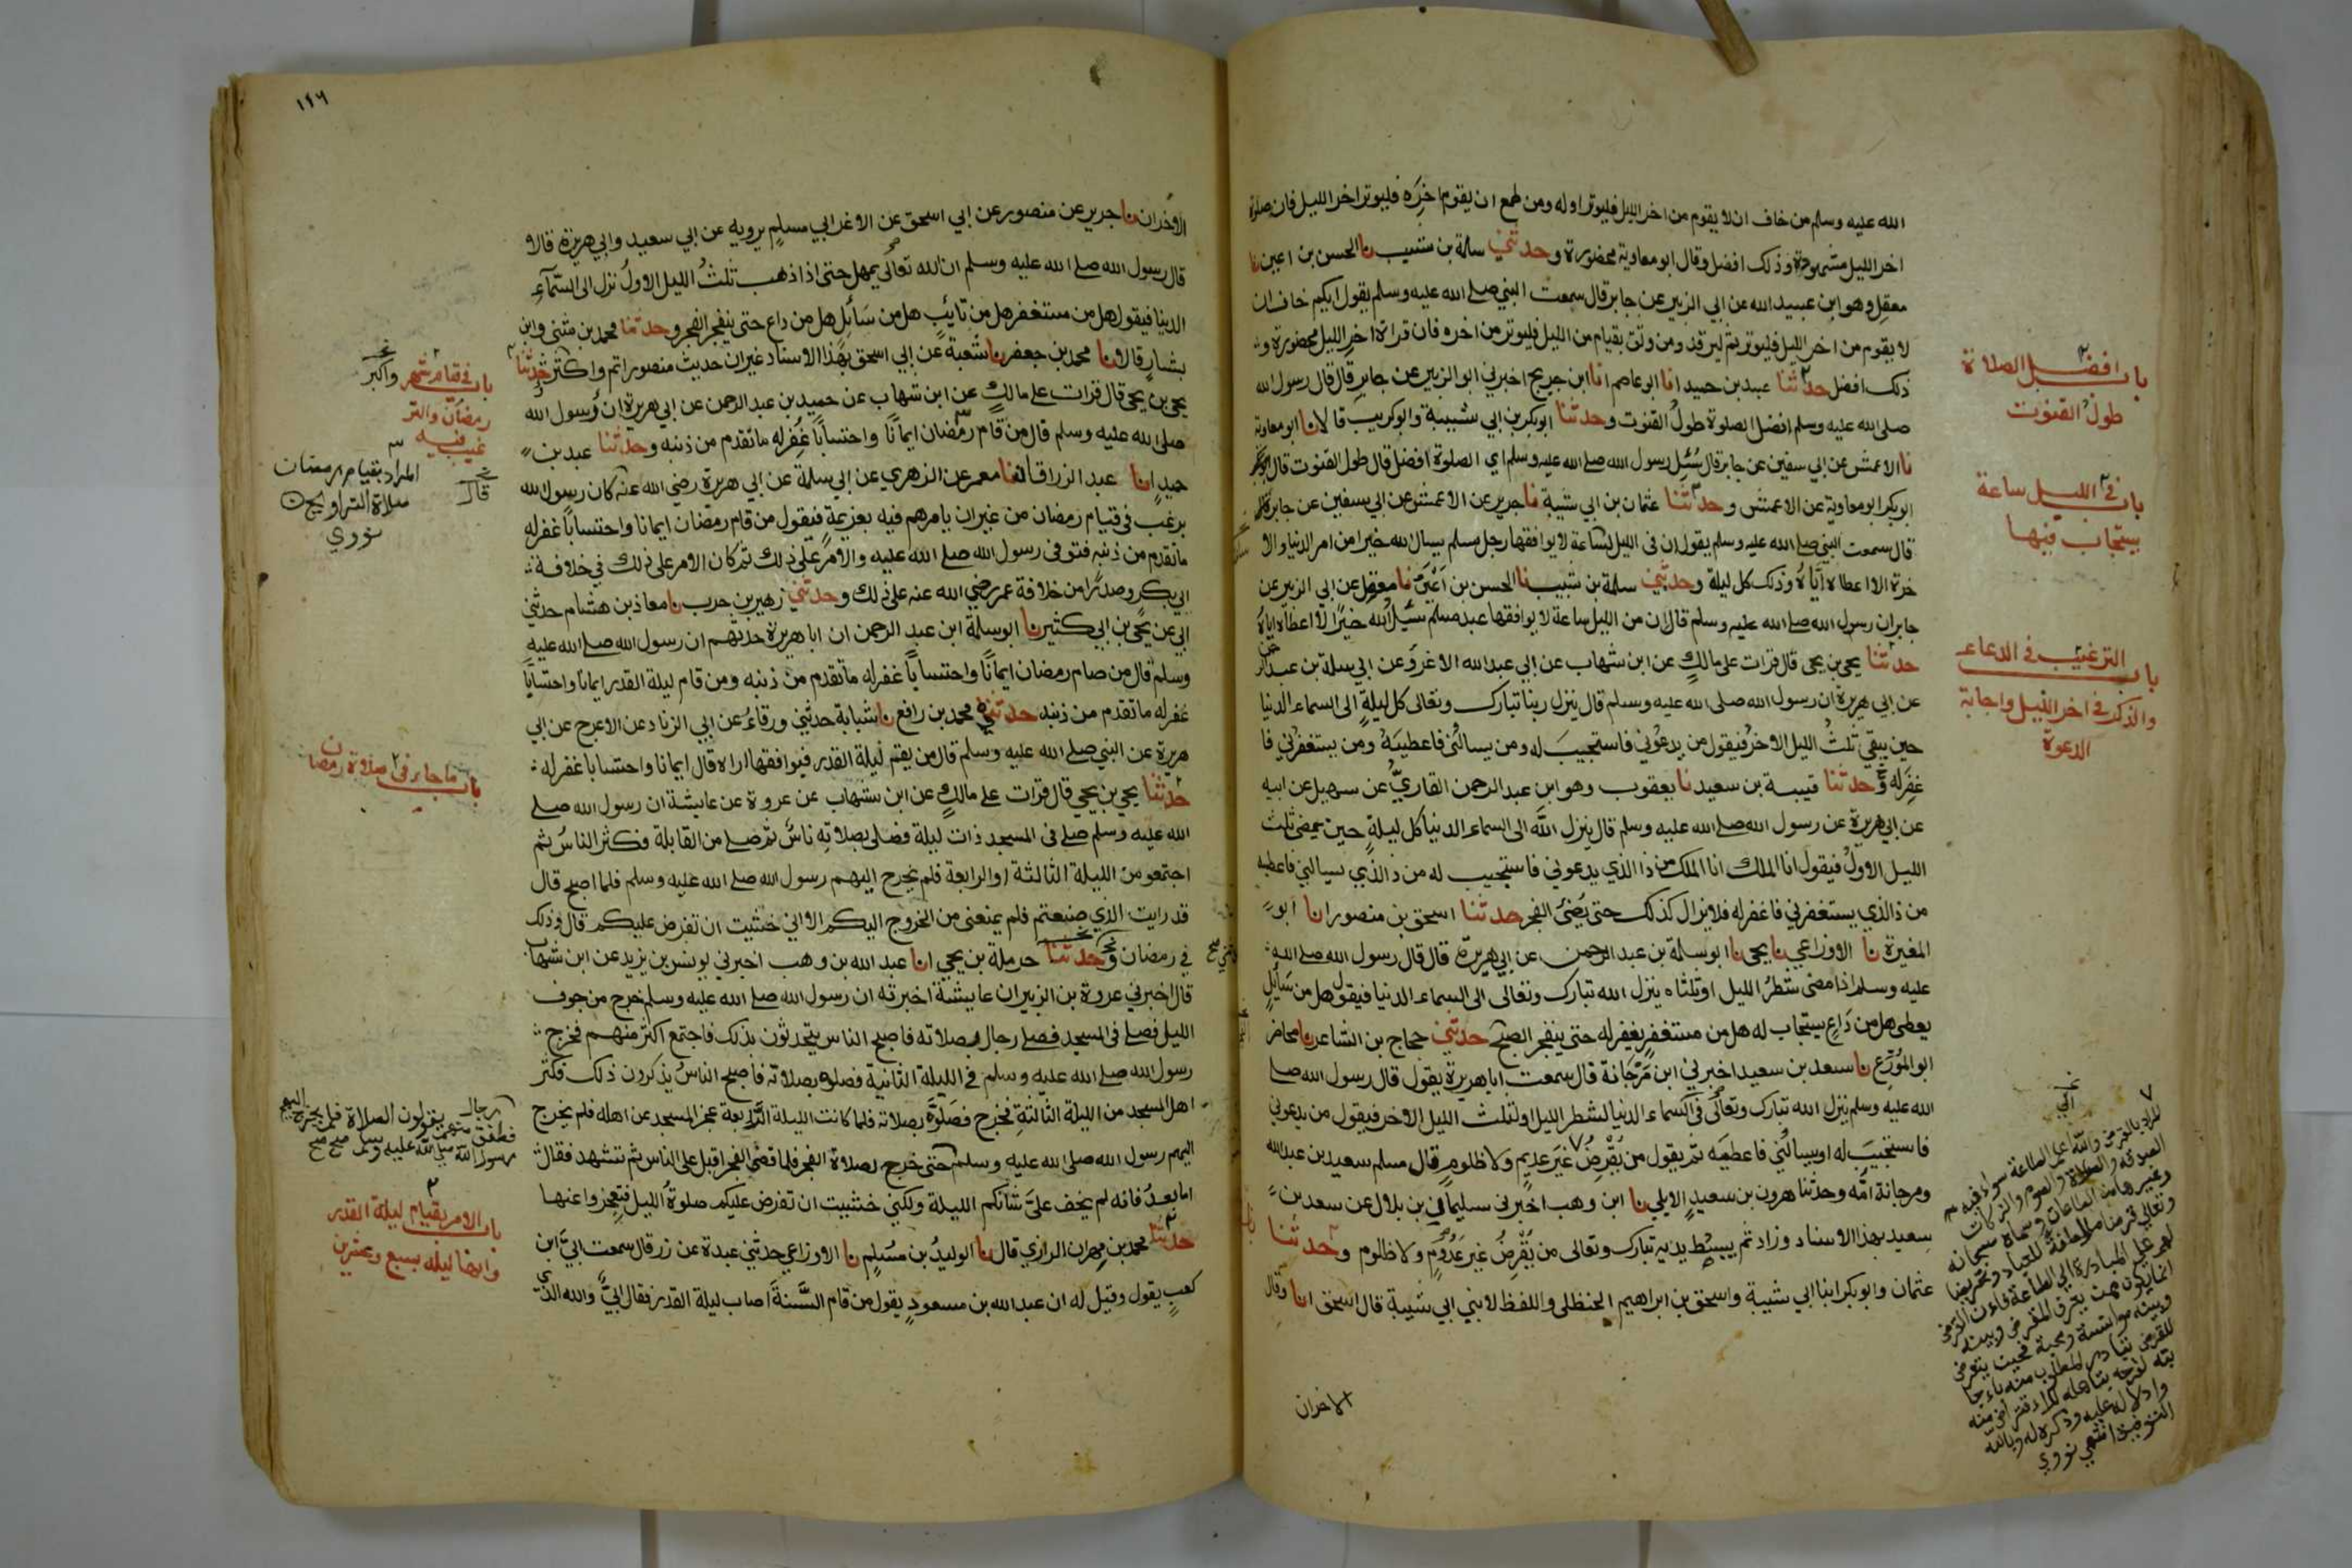 الله عليه وسلم من خاف ان لا يقوم من اخر الليل فليوتر اوله ومن طمع ان يقوم اخره فليوتر اخر الليل فان صلوة
اخر الليل مشهودة وذلك افضل وقال ابو معاوية محضورة وحدثني سلمة بن شبيب نا الحسن بن اعين نا
معقل وهو ابن عبيد الله عن ابي الزبير عن جابر قال سمعت النبي صلى الله عليه وسلم يقول ايكم خاف ان
لا يقوم من اخر الليل فليوتر ثم ليرقد ومن وثق بقيام من الليل فليوتر من اخره فان قراة اخر الليل محضورة و
ذلك افضل حدثنا عبد بن حميد انا ابو عاصم انا ابن جريج اخبرني ابو الزبير عن جابر قال قال رسول الله
صلى الله عليه وسلم افضل الصلوة طول القنوت وحدثنا ابو بكر بن ابي شيبة وابو كريب قالا نا ابو معاوية
نا الاعمش عن ابي سفين عن جابر قال سئل رسول الله صلى الله عليه وسلم اي الصلوة افضل قال طول القنوت قال
ابو بكر ابو معاوية عن الاعمش وحدثنا عثمان بن ابي شيبة نا جرير عن الاعمش عن ابي سفين عن جابر
قال سمعت النبي صلى الله عليه وسلم يقول ان في الليل لساعة لا يوافقها رجل مسلم يسال الله خيرا من امر الدنيا والا
خرة الا اعطاه اياه وذلك كل ليلة وحدثني سلمة بن شبيب نا الحسن بن اعين نا معقل عن ابي الزبير عن
جابر ان رسول الله صلى الله عليه وسلم قال ان من الليل ساعة لا يوافقها عبد مسلم يسئل الله خيرا الا اعطاه اياه
حدثنا يحيى بن يحيى قال قرات على مالك عن ابن شهاب عن ابي عبد الله الاغر وعن ابي سلمة بن عبد الرحمن
عن ابي هريرة ان رسول الله صلى الله عليه وسلم قال ينزل ربنا تبارك وتعالى كل ليلة الى السماء الدنيا
حين يبقى ثلث الليل الاخر فيقول من يدعوني فاستجيب له ومن يسالني فاعطيه ومن يستغفرني فا
غفر له وحدثنا قتيبة بن سعيد نا يعقوب وهو ابن عبد الرحمن القاري عن سهيل عن ابيه
عن ابي هريرة عن رسول الله صلى الله عليه وسلم قال ينزل الله الى السماء الدنيا كل ليلة حين يمضى ثلث
الليل الاول فيقول انا الملك انا الملك من ذا الذي يدعوني فاستجيب له من ذا الذي يسالني فاعطيه
من ذا الذي يستغفرني فاغفر له فلا يزال كذلك حتى يضئ الفجر حدثنا اسحق بن منصور انا ابو
المغيرة نا الاوزاعي نا يحيى نا ابو سلمة بن عبد الرحمن عن ابي هريرة قال قال رسول الله صلى الله
عليه وسلم اذا مضى شطر الليل او ثلثاه ينزل الله تبارك وتعالى الى السماء الدنيا فيقول هل من سائل
يعطى هل من داع يستجاب له هل من مستغفر يغفر له حتى ينفجر الصبح حدثني حجاج بن الشاعر نا محاضر
ابو المورع نا سعد بن سعيد اخبرني ابن مرجانة قال سمعت ابا هريرة يقول قال رسول الله صلى
الله عليه وسلم ينزل الله تبارك وتعالى في السماء الدنيا لشطر الليل او لثلث الليل الاخر فيقول من يدعوني
فاستجيب له او يسالني فاعطيه ثم يقول من يقرض غير عديم ولا ظلوم قال مسلم سعيد بن عبد الله
ومرجانة امه وحدثنا هرون بن سعيد الايلي نا ابن وهب اخبرني سليمان بن بلال عن سعد بن
سعيد بهذا الاسناد وزاد ثم يبسط يديه تبارك وتعالى من يقرض غير عدوم ولا ظلوم وحدثنا
عثمان وابو بكر ابنا ابي شيبة واسحق بن ابراهيم الحنظلي واللفظ لابني ابي شيبة قال اسحق انا وقال
الاخران
باب افضل الصلاة
طول القنوت
باب في الليل ساعة
يستجاب فيها
باب الترغيب في الدعاء
والذكر في اخر الليل واجابة
الدعوة
١٤٦
الاخران نا جرير عن منصور عن ابي اسحق عن الاغر ابي مسلم يرويه عن ابي سعيد وابي هريرة قالا
قال رسول الله صلى الله عليه وسلم ان الله تعالى يمهل حتى اذا ذهب ثلث الليل الاول نزل الى السماء
الدنيا فيقول هل من مستغفر هل من تائب هل من سائل هل من داع حتى ينفجر الفجر وحدثنا محمد بن مثنى وابن
بشار قالا نا محمد بن جعفر نا شعبة عن ابي اسحق بهذا الاسناد غير ان حديث منصور اتم واكثر حدثنا
يحيى بن يحيى قال قرات على مالك عن ابن شهاب عن حميد بن عبد الرحمن عن ابي هريرة ان رسول الله
صلى الله عليه وسلم قال من قام رمضان ايمانا واحتسابا غفر له ما تقدم من ذنبه وحدثنا عبد بن
حميد انا عبد الرزاق قال انا معمر عن الزهري عن ابي سلمة عن ابي هريرة رضي الله عنه كان رسول الله
يرغب في قيام رمضان من غير ان يامرهم فيه بعزيمة فيقول من قام رمضان ايمانا واحتسابا غفر له
ما تقدم من ذنبه فتوفى رسول الله صلى الله عليه والامر على ذلك ثم كان الامر على ذلك في خلافة
ابي بكر وصدرا من خلافة عمر رضي الله عنه على ذلك وحدثني زهير بن حرب نا معاذ بن هشام حدثني
ابي عن يحيى بن ابي كثير نا ابو سلمة ابن عبد الرحمن ان ابا هريرة حدثهم ان رسول الله صلى الله عليه
وسلم قال من صام رمضان ايمانا واحتسابا غفر له ما تقدم من ذنبه ومن قام ليلة القدر ايمانا واحتسابا
غفر له ما تقدم من ذنبه حدثني محمد بن رافع نا شبابة حدثني ورقاء عن ابي الزناد عن الاعرج عن ابي
هريرة عن النبي صلى الله عليه وسلم قال من يقم ليلة القدر فيوافقها اراه قال ايمانا واحتسابا غفر له
حدثنا يحيى بن يحيى قال قرات على مالك عن ابن شهاب عن عروة عن عايشة ان رسول الله صلى
الله عليه وسلم صلى في المسجد ذات ليلة فصلى بصلاته ناس ثم صلى من القابلة فكثر الناس ثم
اجتمعو من الليلة الثالثة او الرابعة فلم يخرج اليهم رسول الله صلى الله عليه وسلم فلما اصبح قال
قد رايت الذي صنعتم فلم يمنعني من الخروج اليكم الا اني خشيت ان تفرض عليكم قال وذلك
في رمضان وحدثنا حرملة بن يحيى انا عبد الله بن وهب اخبرني يونس بن يزيد عن ابن شهاب
قال اخبرني عروة بن الزبير ان عايشة اخبرته ان رسول الله صلى الله عليه وسلم خرج من جوف
الليل فصلى في المسجد فصلى رجال بصلاته فاصبح الناس يتحدثون بذلك فاجتمع اكثر منهم فخرج
رسول الله صلى الله عليه وسلم في الليلة الثانية فصلوه بصلاته فاصبح الناس يذكرون ذلك فكثر
اهل المسجد من الليلة الثالثة فخرج فصلوا بصلاته فلما كانت الليلة الرابعة عجز المسجد عن اهله فلم يخرج
اليهم رسول الله صلى الله عليه وسلم حتى خرج لصلاة الفجر فلما قضى الفجر اقبل على الناس ثم تشهد فقال
اما بعد فانه لم يخف علي شانكم الليلة ولكني خشيت ان تفرض عليكم صلوة الليل فتعجزوا عنها
حدثنا محمد بن مهران الرازي قال نا الوليد بن مسلم نا الاوزاعي حدثني عبدة عن زر قال سمعت ابي ابن
كعب يقول وقيل له ان عبد الله بن مسعود يقول من قام السنة اصاب ليلة القدر فقال ابي والله الذي
باب في قيام شهر
رمضان والتر
غيب فيه
واكبر
المراد بقيام رمضان
صلاة التراويح
نووي
قال
باب ما جاء في صلاة رمضان
فطفق رجال منهم يقولون الصلاة فلم يخرج اليهم
رسول الله صلى الله عليه وسلم صح صح
باب الامر بقيام ليلة القدر
وانها ليلة سبع وعشرين